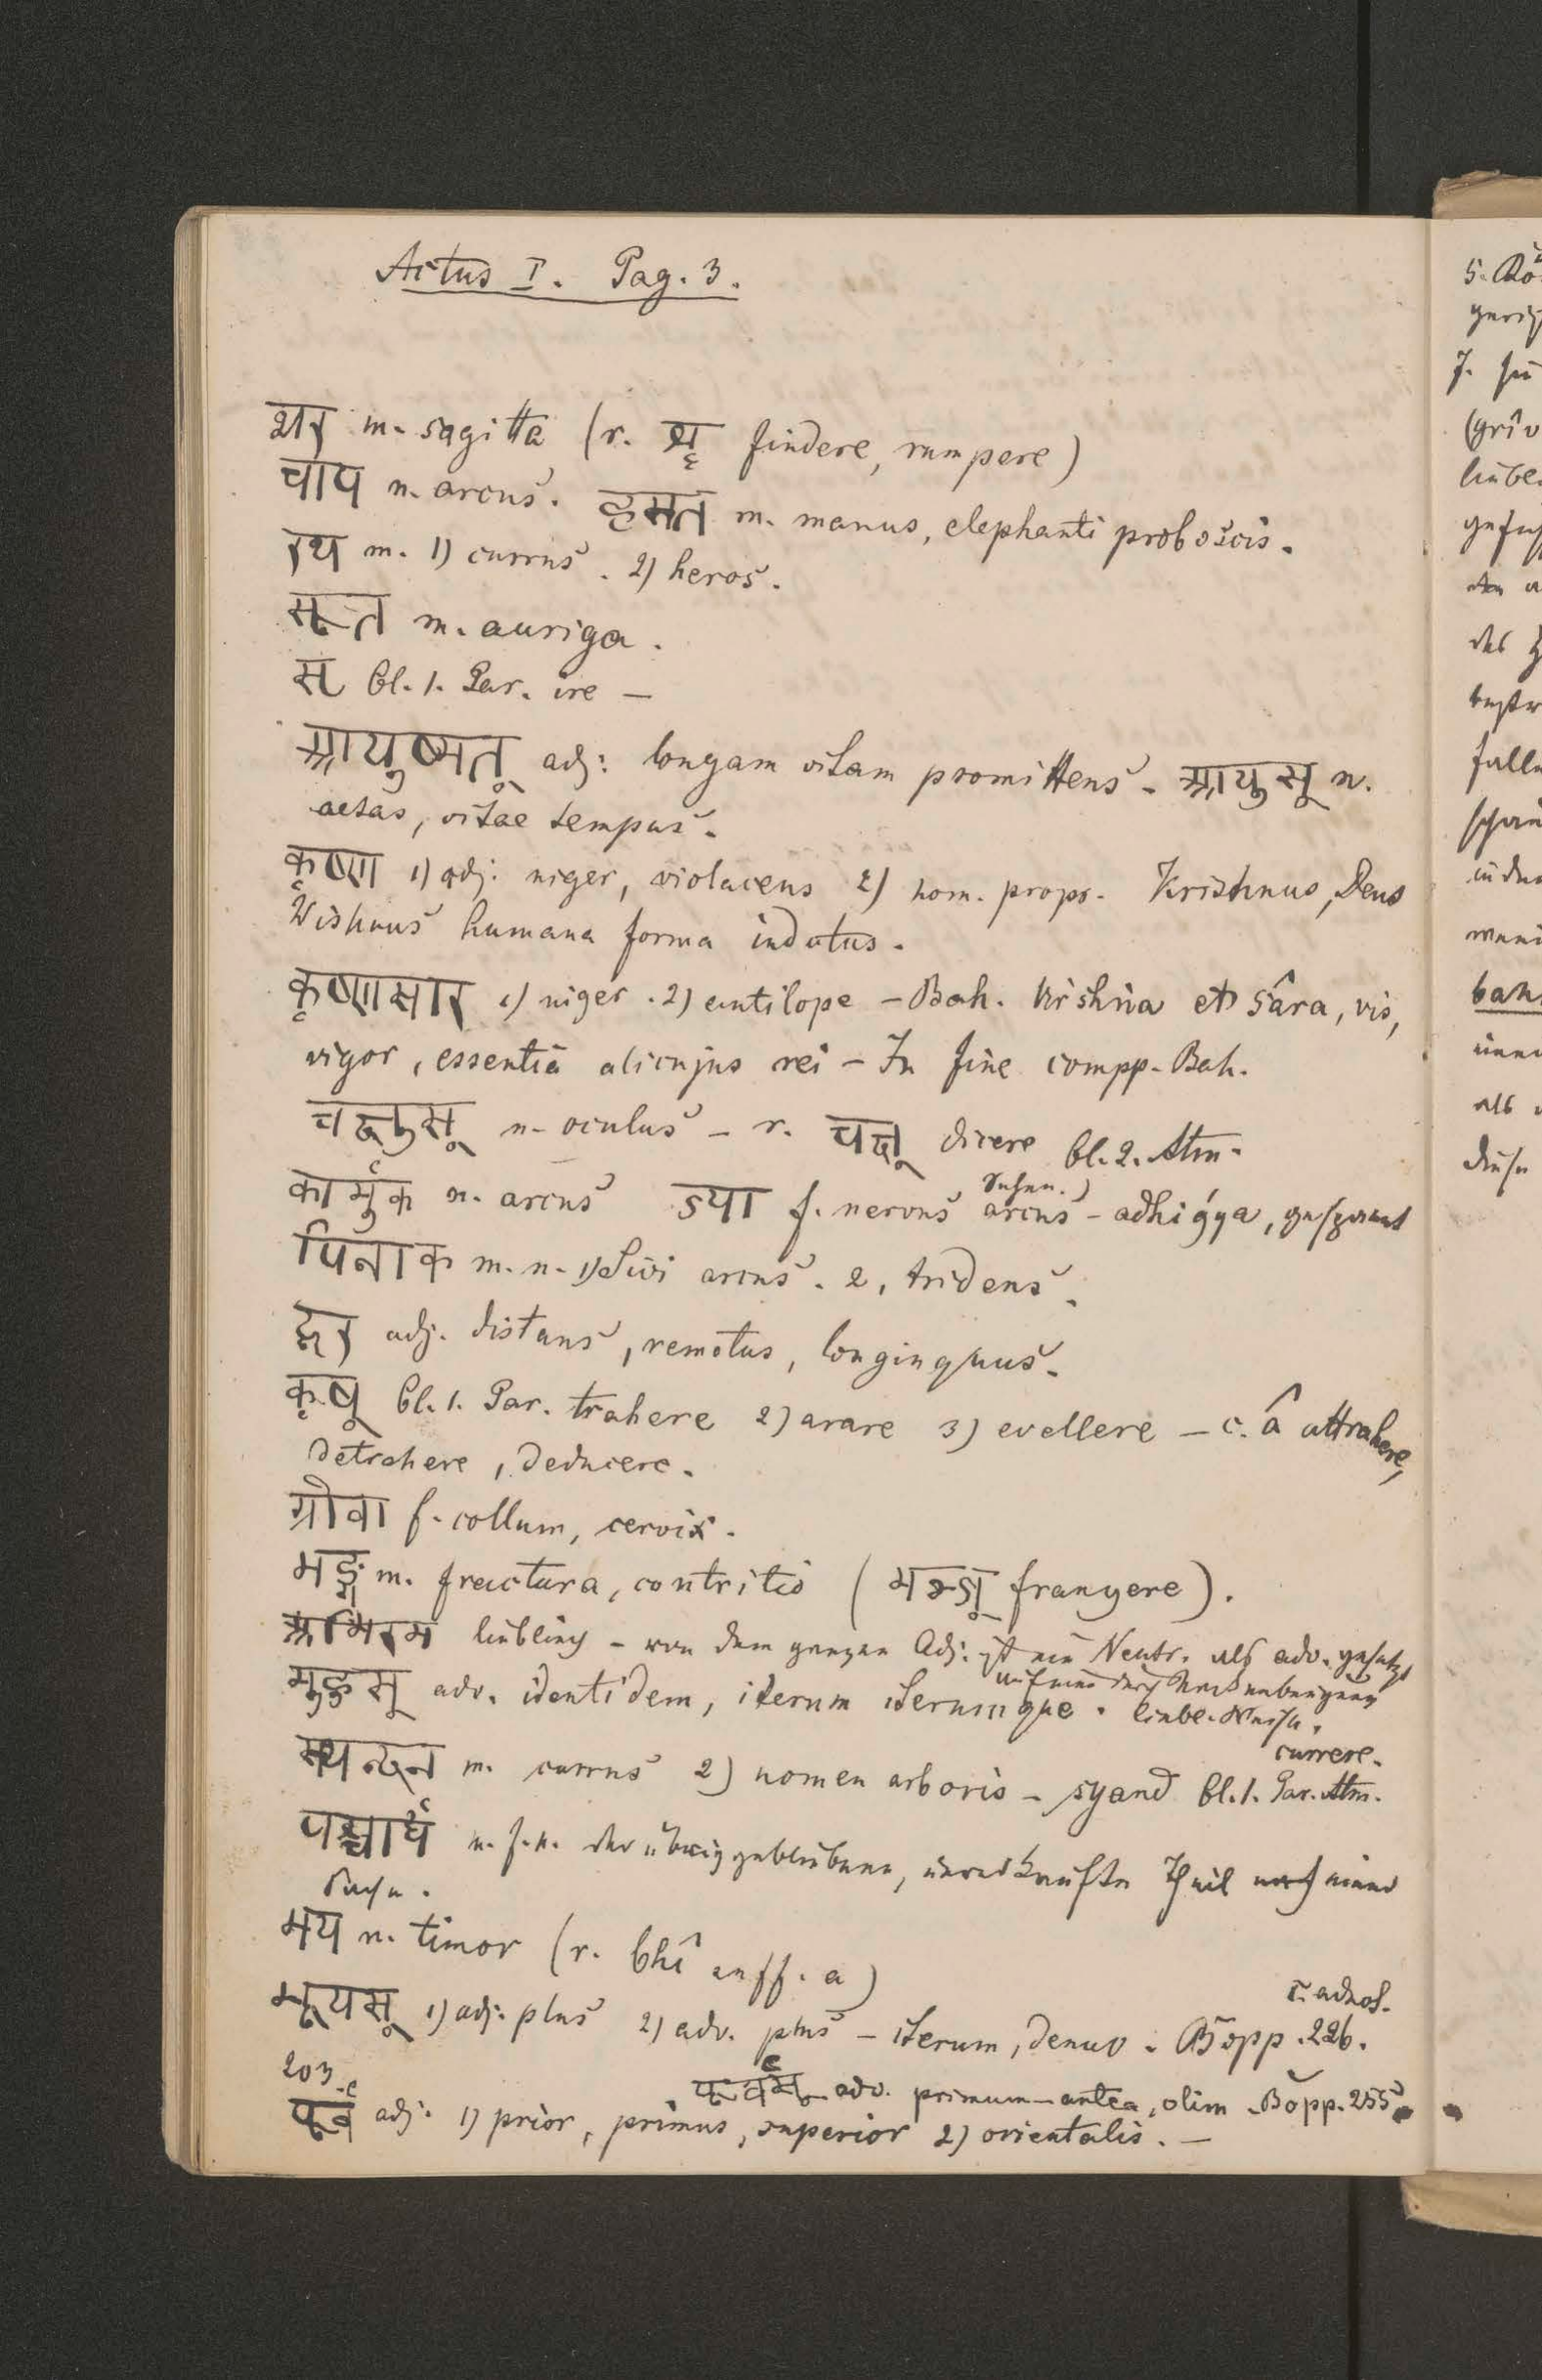 Actus I. Pag. 3.
शर m. sagitta (r. शॄ findere, rumpere)
चाप n. arcus. हस्त m. manus, elephanti proboscis.
रथ m. 1) currus. 2) heros.
सूत m. auriga.
सृ Cl. 1. Par. ire –
आयुष्मत् adj: longam vitam promittens. – आयुस् n.
aetas, vitae tempus.
कृष्ण 1) adj: niger, violaceus 2) nom. propr. Krishnus, Deus
Wishnus humana forma indutus.
कृष्णसार 1) niger. 2) antilope – Bah. Krishna et sâra, vis,
vigor, essentia alicujus rei – In fine compp. Bah.
चक्षुस् n. oculus – r. चक्ष् dicere Cl. 2. Atm.
कार्मुक n. arcus ज्या f. nervus arcus – adhigya, gespannt
Sehne.)
पिनाक m. n. 1) Sivi arcus. 2, tridens.
दूर adj. distans, remotus, longinquus.
कृष् Cl. 1. Par. trahere 2) arare 3) evellere – c. â attrahere,
detrahere, deducere.
ग्रीवा f. collum, cervix.
भङ्ग m. fractura, contritio (भञ्ज् frangere).
अभिरम lieblich – von dem ganzen Adj: ist ein Neutr. als adv. gesetzt
मुहुस् adv. identidem, iterum iterumque. liebl. Weise.
स्यन्दन m. currus 2) nomen arboris – syand Cl. 1. Par. Atm.
currere.
पश्चार्ध n. der übrig gebliebene, Theil einer
Sache.
भय n. timor (r. bhî suff. a)
भूयस् 1) adj: plus 2) adv. plus – iterum, denuo. Bopp. 226.
203.
पूर्वम् adv. primum – antea, olim. Bopp. 255
पूर्व adj. 1) prior, primus, superior 2) orientalis. –
5.
7.
(grîv